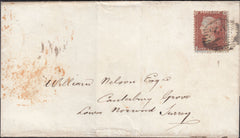 William Nelson Esqre
Canterbury Grove
Lower Norwood Surrey